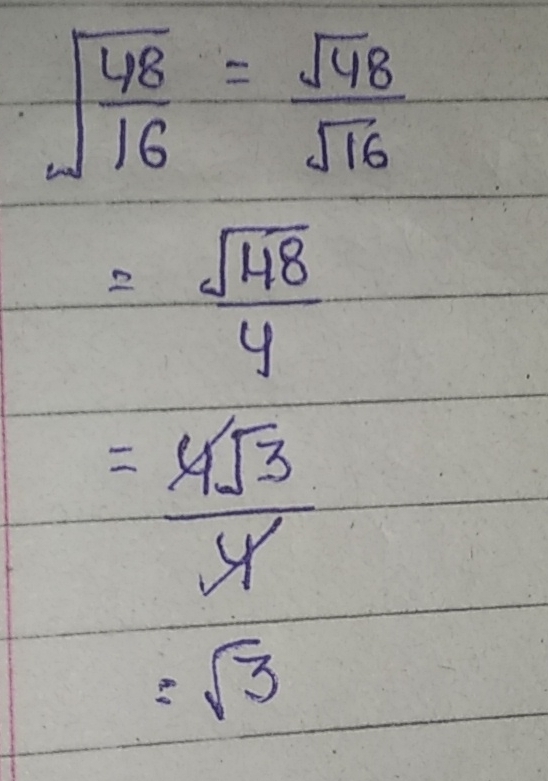 √(48/16) = √48/√16
= √48/4
= 4√3/4
= √3